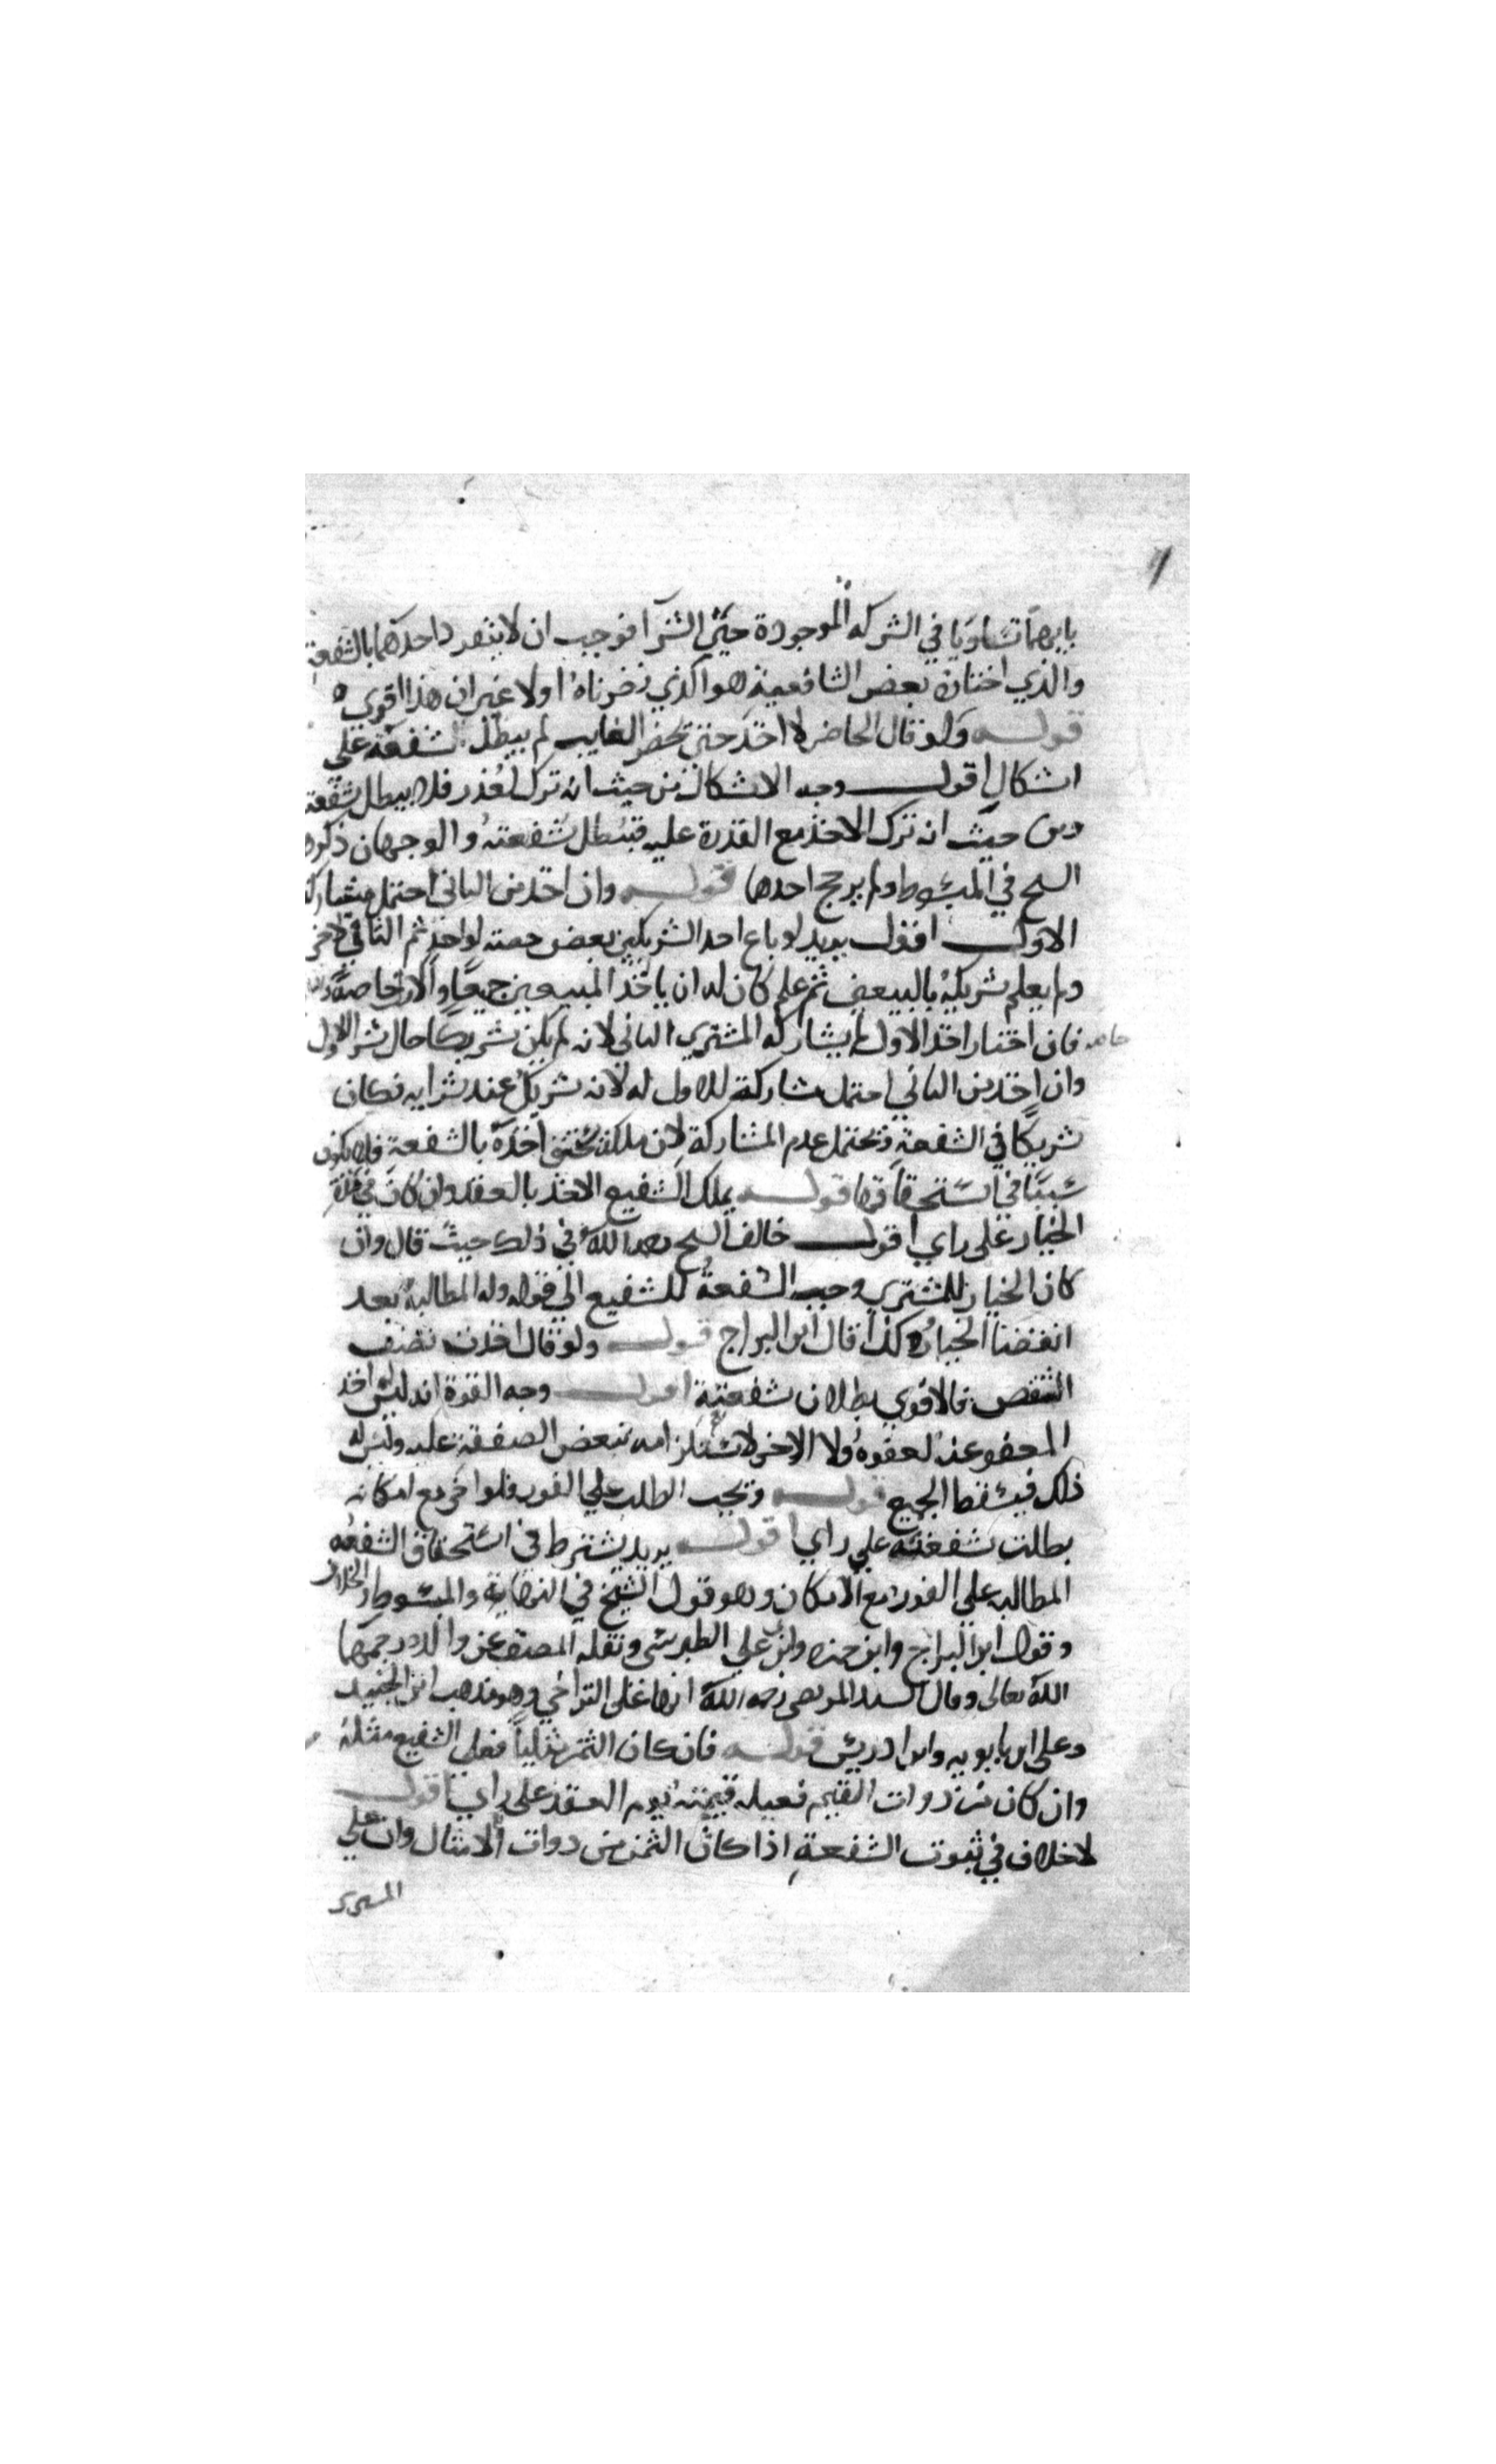 بايهما تساويا في الشركه الموجودة حتى الشرا فوجب ان لا ينفرد احدهما بالشفعة
والذي اختاره بعض الشافعية هو الذي نصرناه اولا غير ان هذا اقوى
قوله ولو قال الحاضر لا اخذ حتى يحضر الغايب لم يبطل شفعته على
اشكال اقول وجه الاشكال من حيث انه ترك لعذر فلا يبطل شفعته
ومن حيث انه ترك الاخذ مع القدرة عليه فتبطل شفعته والوجهان ذكرهما
الشيخ في المبسوط ولم يرجح احدهما قوله وان اخذ من الثاني احتمل مشاركة
الاول اقول يريد لو باع احد الشريكين بعض حصته لواحد ثم الباقي لاخر
ولم يعلم شريكه بالبيعين ثم علم كان له ان ياخذ المبيعين جميعا والاول خاصة والثاني
خاصه فان اختار اخذ الاول لم يشاركه المشتري الثاني لانه لم يكن شريكا حال شرا الاول
وان اخذ من الثاني احتمل مشاركة الاول له لانه شريك عند شرايه فكان
شريكا في الشفعة ويحتمل عدم المشاركة لان ملكه يستحق اخذه بالشفعة فلا يكون
سببا في استحقاقها قوله يملك الشفيع الاخذ بالعقد وان كان في مدة
الخيار على راي اقول خالف الشيخ رحمه الله في ذلك حيث قال وان
كان الخيار للمشتري وجب الشفعة للشفيع الى قوله وله المطالبة بعد
انقضا الخيار وكذا قال ابن البراج قوله ولو قال اخذت نصف
الشقص فالاقوى بطلان شفعته اقول وجه القوة انه ليس له اخذ
المعفو عنه لعفوه ولا الاخر لاستلزامه تبعض الصفقة عليه وليس له
ذلك فيسقط الجميع قوله ويجب الطلب على الفور فلو اخر مع امكانه
بطلت شفعته على راي اقول يريد يشترط في استحقاق الشفعه
المطالبه على الفور مع الامكان وهو قول الشيخ في النهاية والمبسوط والخلاف
وقول ابن البراج وابن حمزه وابن علي الطبرسي ونقله المصنف عن والده رحمهما
الله تعالى وقال السيد المرتضى رحمه الله انها على التراخي وهو مذهب ابن الجنيد
وعلي ابن بابويه وابن ادريس قوله فان كان الثمن مثليا فعلى الشفيع مثله
وان كان من ذوات القيم فعليه قيمته يوم العقد على راي اقول
لا خلاف في ثبوت الشفعة اذا كان الثمن من ذوات الامثال وان على
المشتري